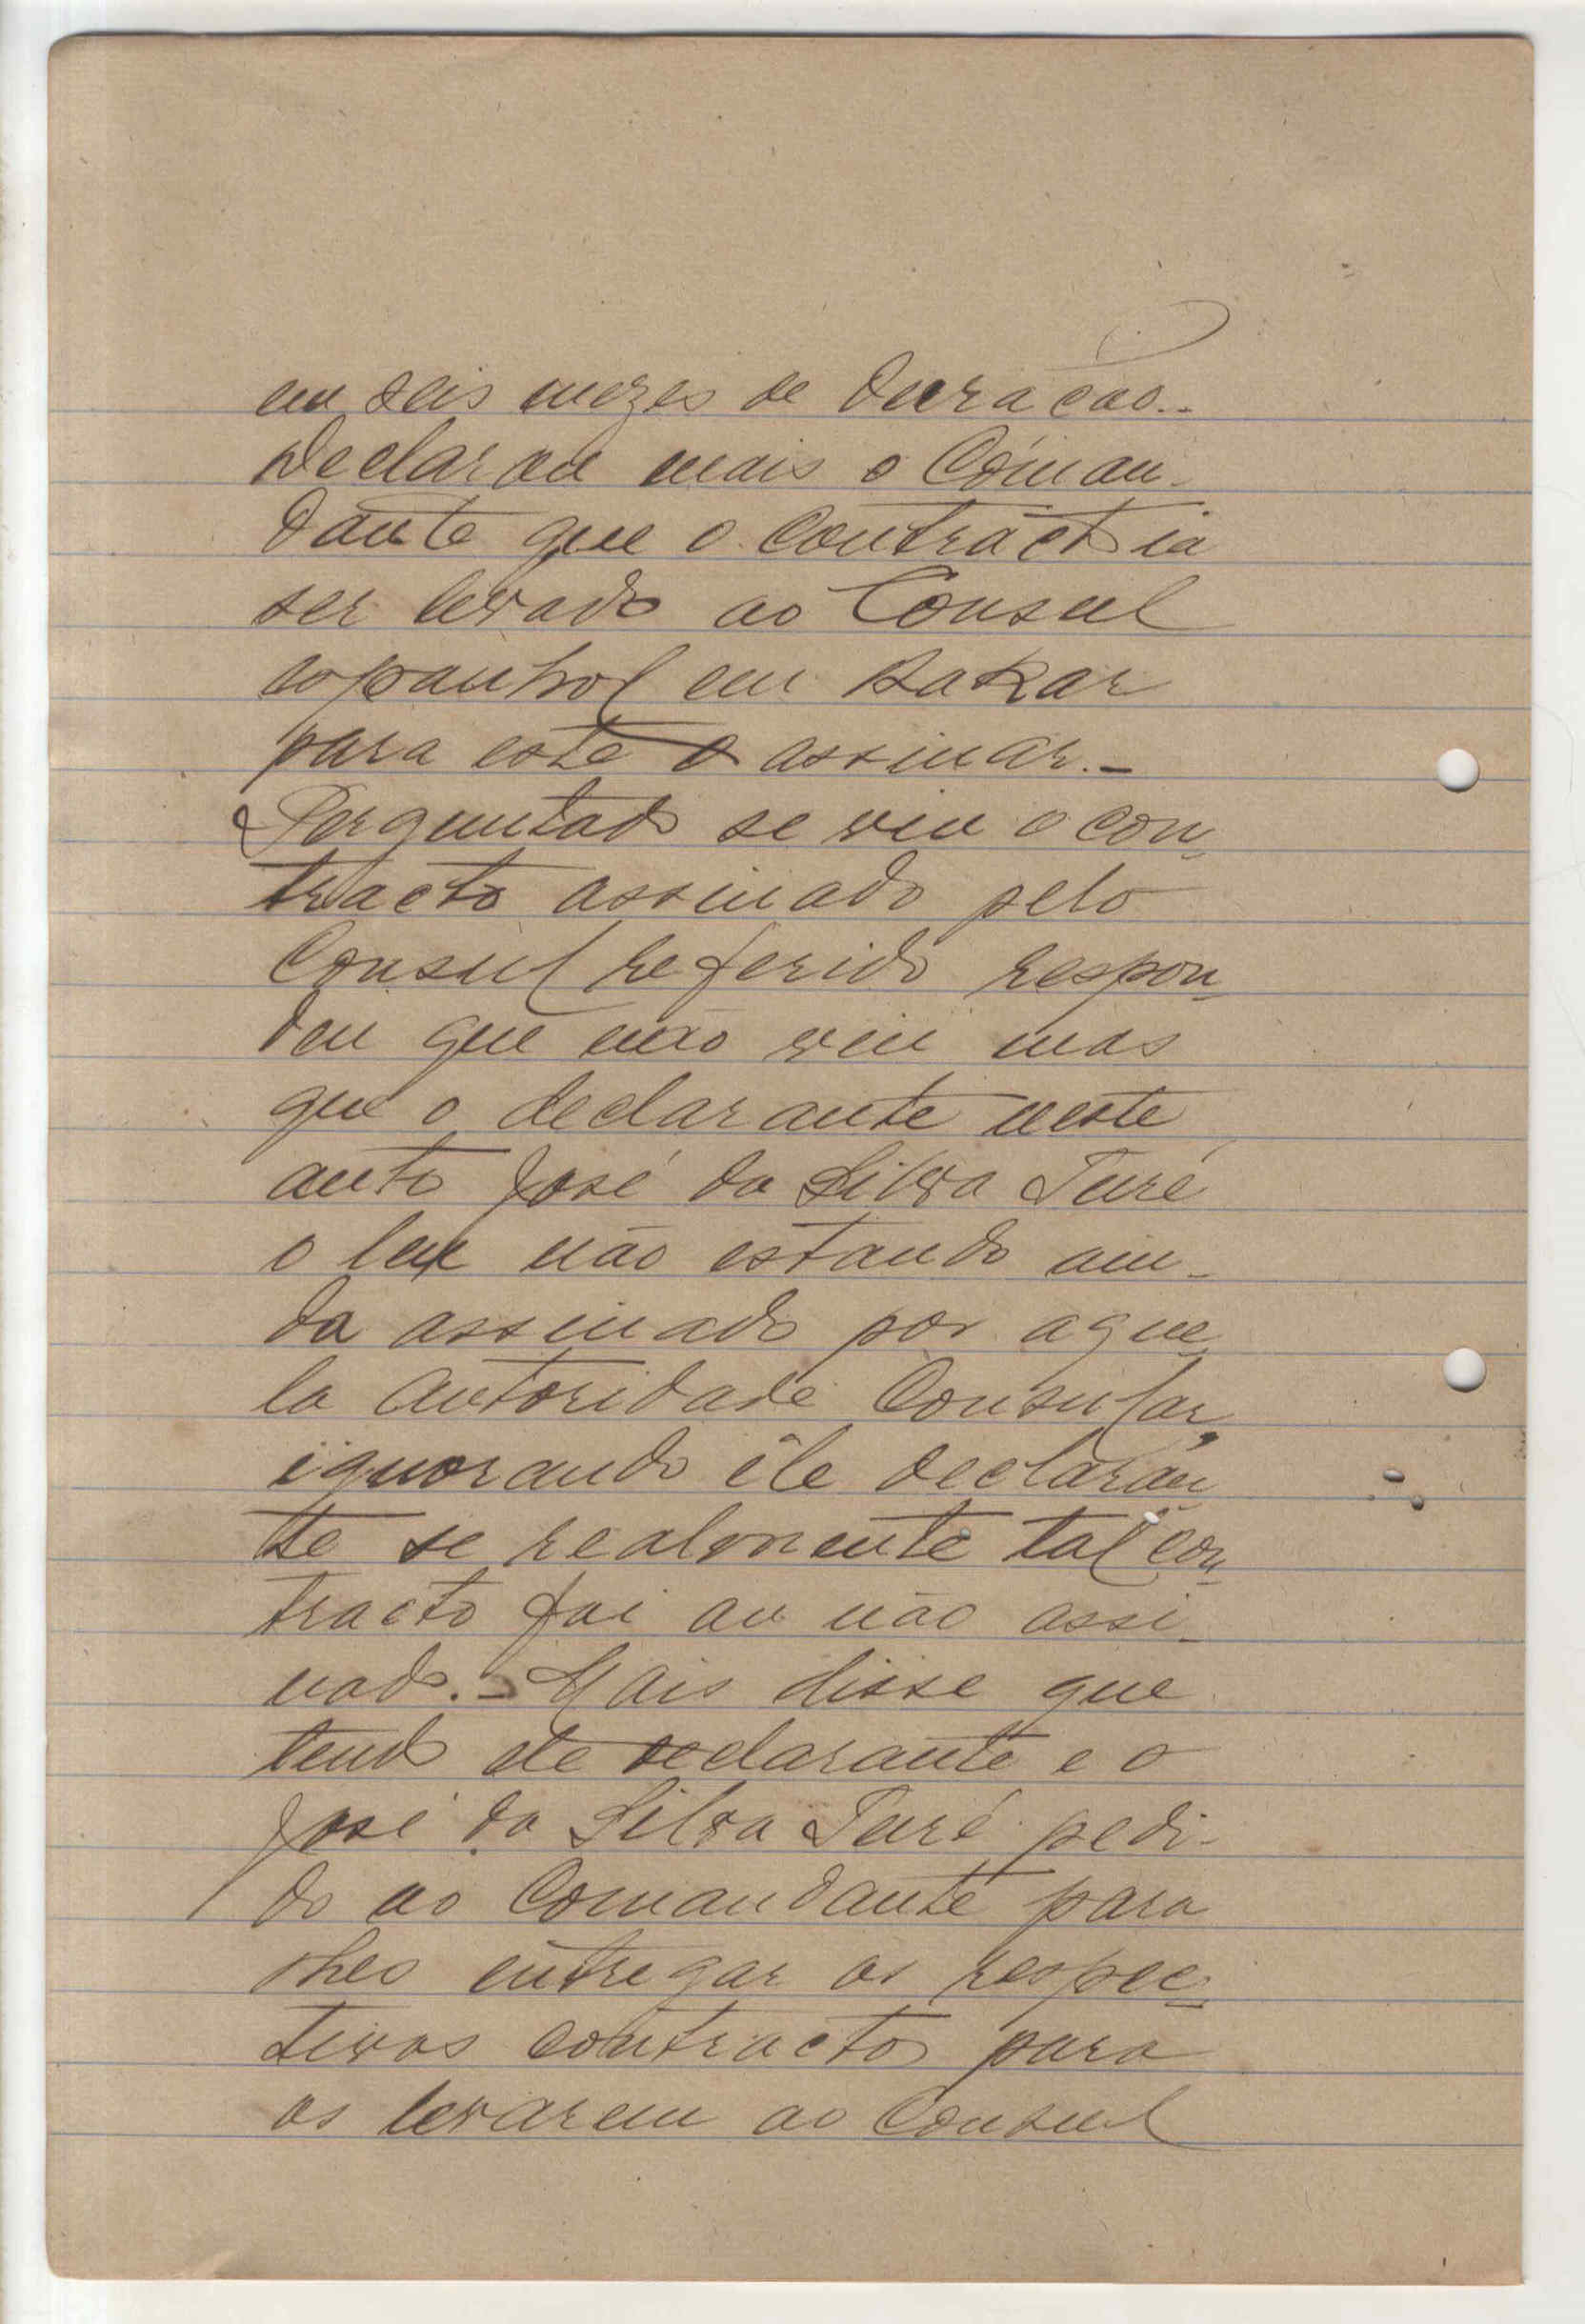 ou seis mezes de duração.-
Declarou mais o Coman-
dante que o contracto ia
ser levado ao Consul
espanhol em Dakar
para este o assinar.-
Perguntado se viu o con-
tracto assinado pelo
Consul referido respon-
deu que não viu mas
que o declarante neste
auto José da Silva Turé
o leu não estando ain-
da assinado por aque-
la autoridade Consular,
ignorando êle declaran-
te se realmente tal con-
tracto foi ou não assi-
nado.- Mais disse que
tendo ele declarante e o
José da Silva Turé pedi-
do ao Comandante para
lhes entregar os respec-
tivos contractos para
os levarem ao Consul